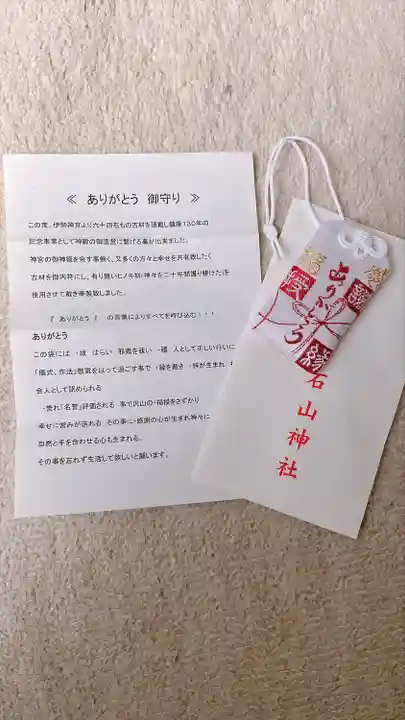 ≪ ありがとう 御守り ≫
この度、伊勢神宮より六十四石もの古材を頂戴し鎮座130年の
記念事業として神殿の御造営に繋げる事が出来ました。
神宮の御神徳を余す事無く、又多くの方々と幸せを共有致したく
古材を御内符にし、有り難いヒノキ材(神々を二十年間護り続けた)を
使用させて戴き奉製致しました。
『 ありがとう 』 の言葉によりすべてを呼び込む!!!
ありがとう
この袋には ・祓 はらい 邪霊を祓い ・禮 人として正しい行いに
「儀式、作法」敬気をはって過ごす事で ・縁を戴き ・絆が生まれ
会人として認められる
・誉れ「名誉」評価される 事で沢山の ・福授をさずかり
幸せに営みが送れる その事に・感謝の心が生まれ神々に
自然と手を合わせる心も生まれる。
その事を忘れず生活して欲しいと願います。
ありがとう
縁
授
石山神社